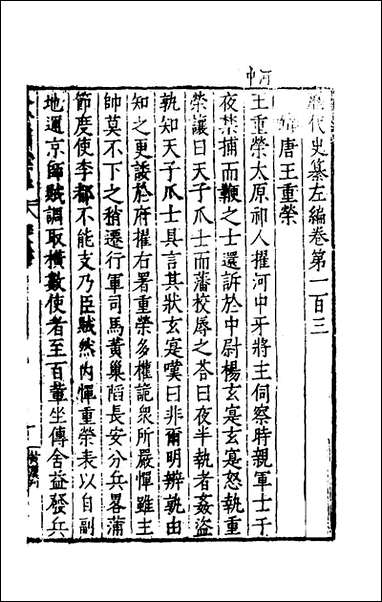 河中
歷代史纂左編卷第一百三
唐王重榮
王重榮太原祁人擢河中牙將主伺察時親軍士于
夜禁捕而鞭之士還訴於中尉楊玄寔玄寔怒執重
榮讓曰天子爪士而藩校辱之荅曰夜半執者姦盜
孰知天子爪士具言其狀玄寔嘆曰非爾明辨孰由
知之更諉於府擢右署重榮多權詭衆所嚴憚雖主
帥莫不下之稍遷行軍司馬黃巢䧟長安分兵畧蒲
節度使李都不能支乃臣賊然内憚重榮表以自副
地邇京師賊調取橫數使者至百輩坐傳舍益發兵